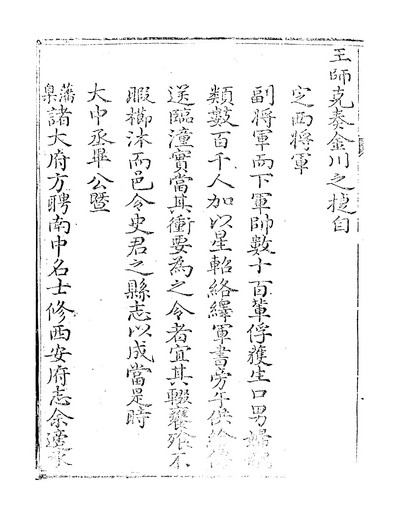 王師克奏金川之捷自
定西將軍
副將軍而下軍帥數十百輩俘獲生口男婦
類數百千人加以星軺絡繹軍書旁午供給
送臨潼實當其衝要為之令者宜其輟饔飱不
暇櫛沐而邑令史君之縣志以成當是時
大中丞畢公暨
藩臬諸大府方聘南中名士修西安府志余適承